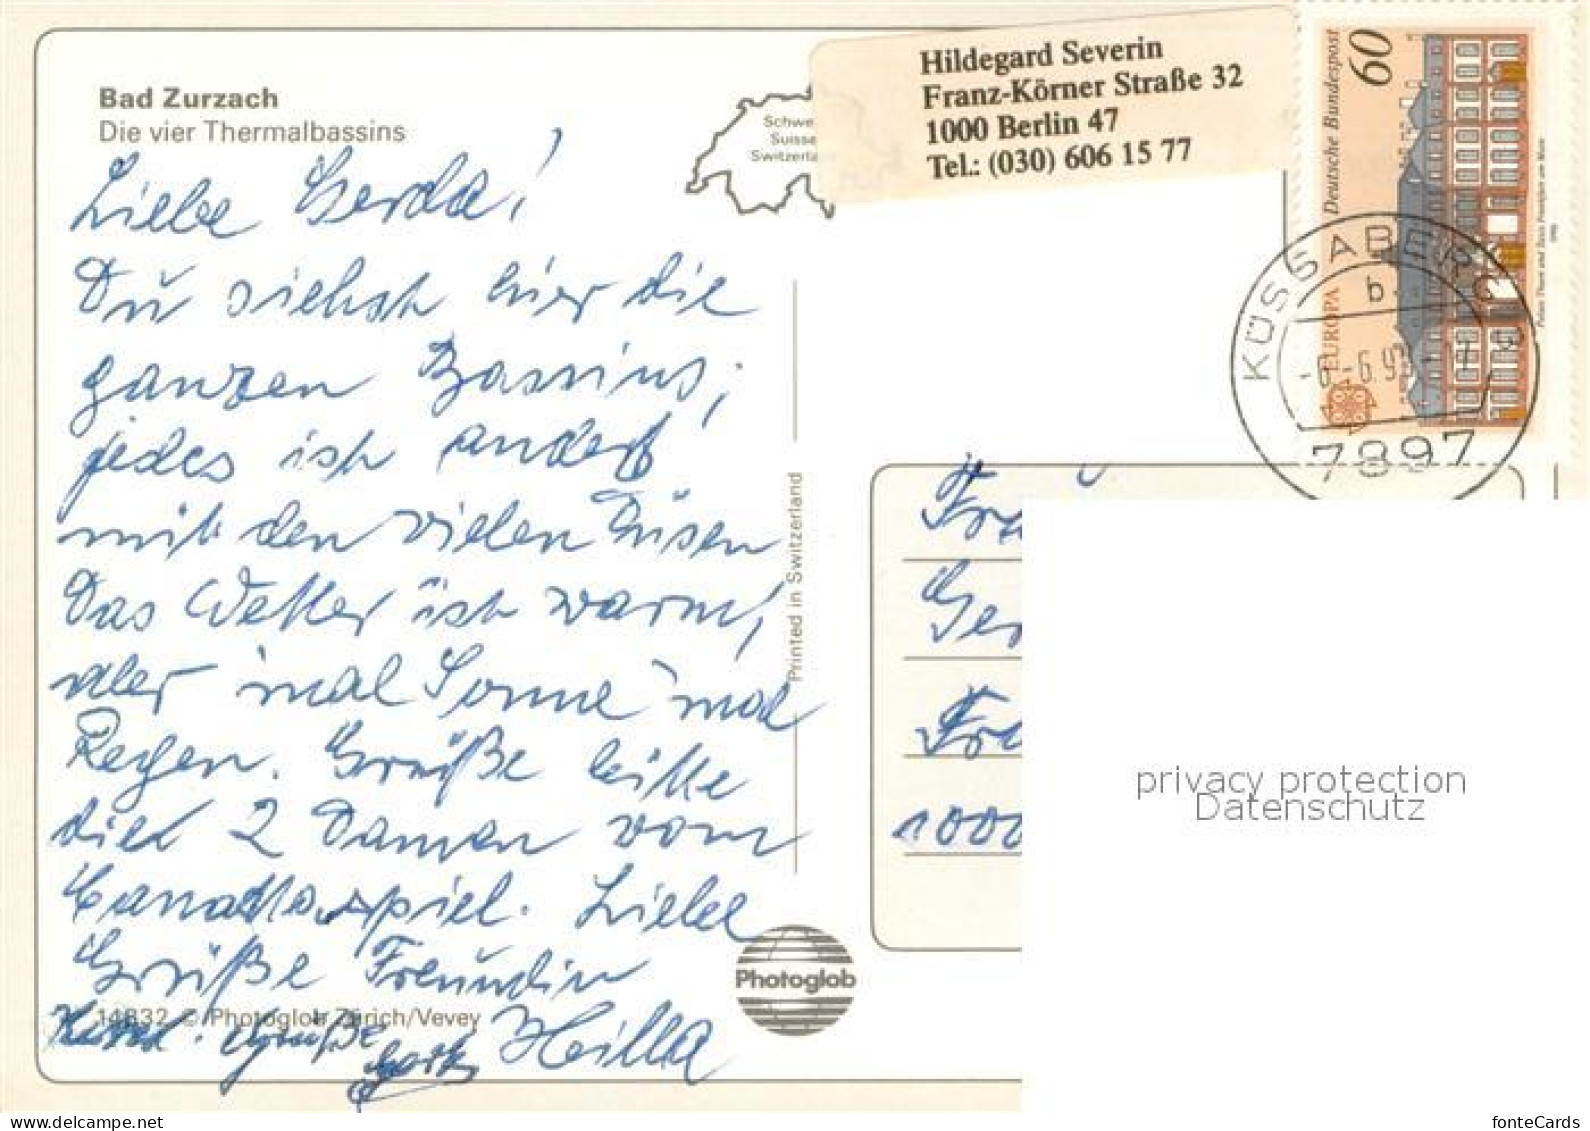 Bad Zurzach
Die vier Thermalbassins
Schwe
Suisse
Switzerla
Hildegard Severin
Franz-Körner Straße 32
1000 Berlin 47
Tel.: (030) 606 15 77
60
Deutsche Bundespost
EUROPA
KÜSSABERG
b
7897
Liebe Gerda!
Du siehst hier die
ganzen Bassins;
jedes ist anders
mit den vielen Düsen
Das Wetter ist warm,
aber mal Sonne mal
Regen. Grüße bitte
die 2 Damen vom
Canastaspiel. Liebe
Grüße Freundin
Hilla
Grüße
14832 © Photoglob Zürich/Vevey
Printed in Switzerland
Photoglob
Fra
Ger
1000
privacy protection
Datenschutz
www.ansichtskartenversand.com
fonteCards